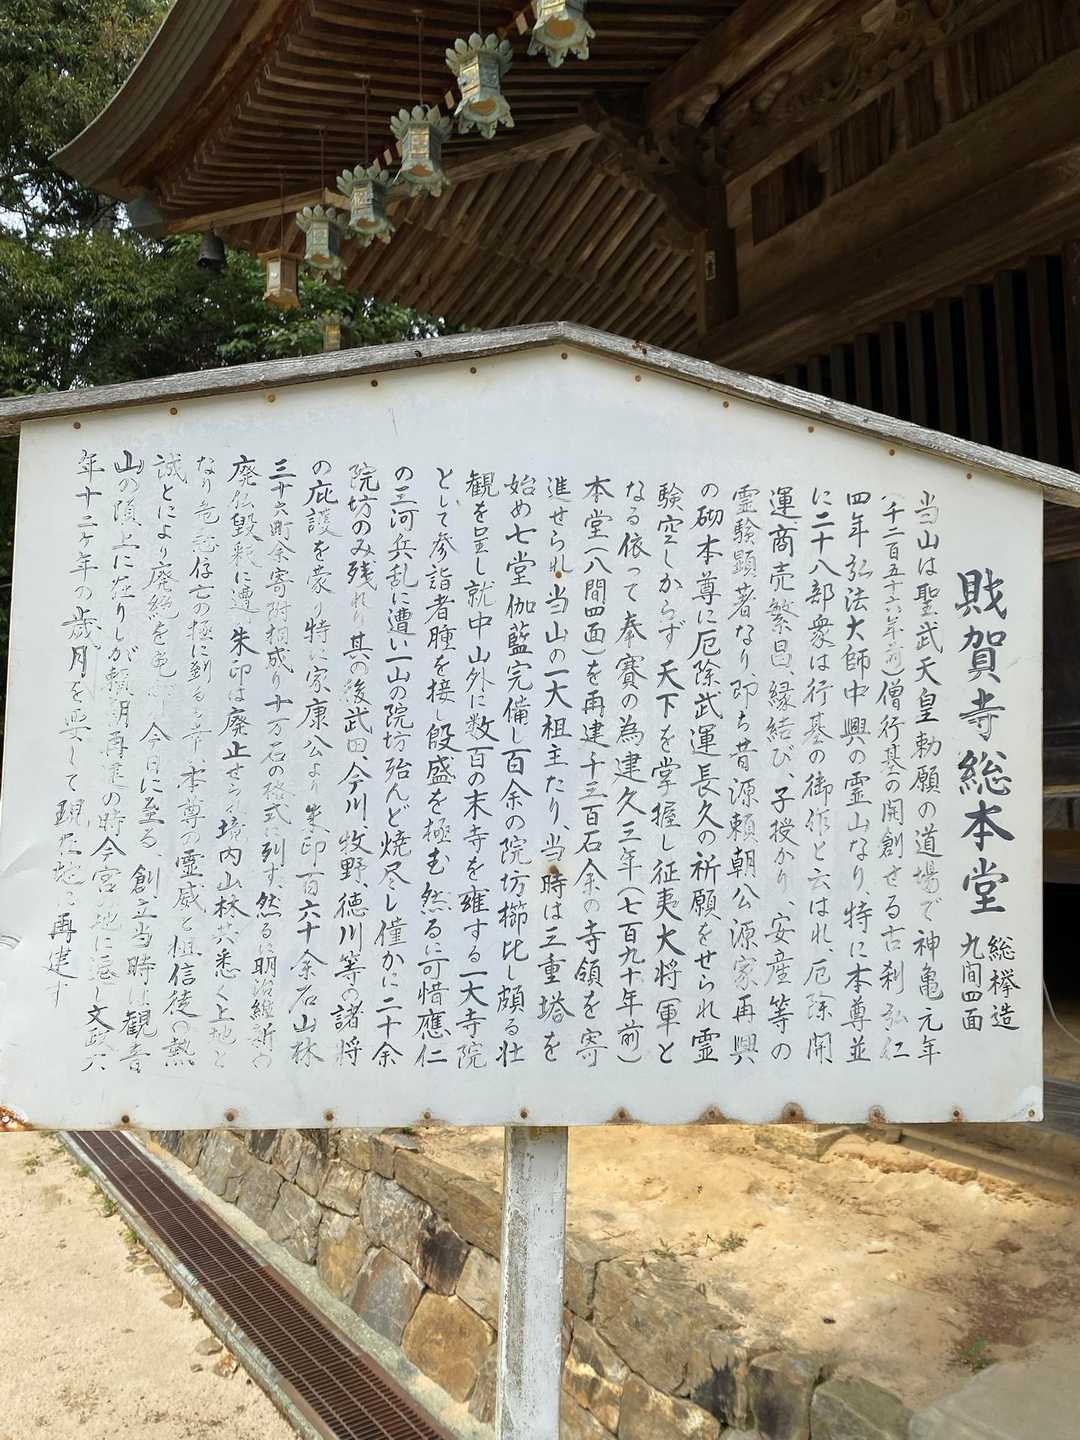 財賀寺総本堂
総欅造
九間四面
当山は聖武天皇勅願の道場で神亀元年
(千二百五十六年前)僧行基の開創せる古刹弘仁
四年弘法大師中興の霊山なり、特に本尊並
に二十八部衆は行基の御作と云はれ、厄除開
運商売繁昌、縁結び、子授かり、安産等の
霊験顕著なり、即ち昔源頼朝公源家再興
の砌本尊に厄除武運長久の祈願をせられ霊
験空しからず天下を掌握し征夷大将軍と
なる依って奉賽の為建久三年(七百九十年前)
本堂(八間四面)を再建千三百石余の寺領を寄
進せられ当山の一大祖主たり、当時は三重塔を
始め七堂伽藍完備し百余の院坊櫛比し頗る壮
観を呈し就中山外に数百の末寺を雍する一大寺院
として参詣者腫を接し殷盛を極む然るに可惜應仁
の三河兵乱に遭い一山の院坊殆んど焼尽し僅かに二十余
院坊のみ残れり其の後武田、今川、牧野、徳川等の諸将
の庇護を蒙り特に家康公より朱印百六十余石山林
三十六町余寄附相成り十万石の格式に列す、然るに明治維新の
廃仏毀釈に遭い朱印は廃止せられ境内山林共悉く上地と
なり危急存亡の極に到るも幸、本尊の霊威と檀信徒の熱
誠とにより廃絶を免 今日に至る、創立当時は観音
山の頂上に在りしが頼朝再建の時今宮の地に遷し文政六
年十二ヶ年の歳月を要して現在地に再建す